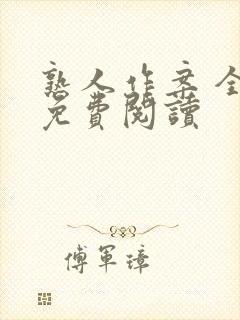 熟人作案全
免費閱讀
傅軍璋